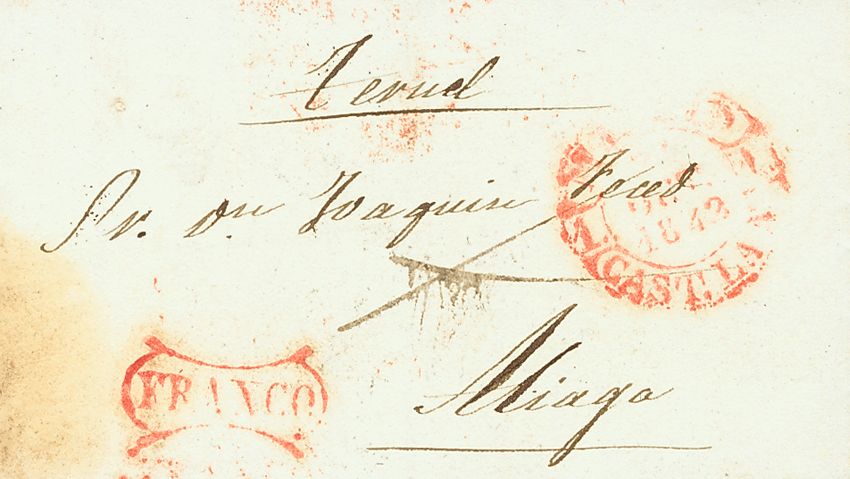 Teruel
Sr. Dn Joaquin Feced
1842
CAST. LA
FRANCO
Aliaga